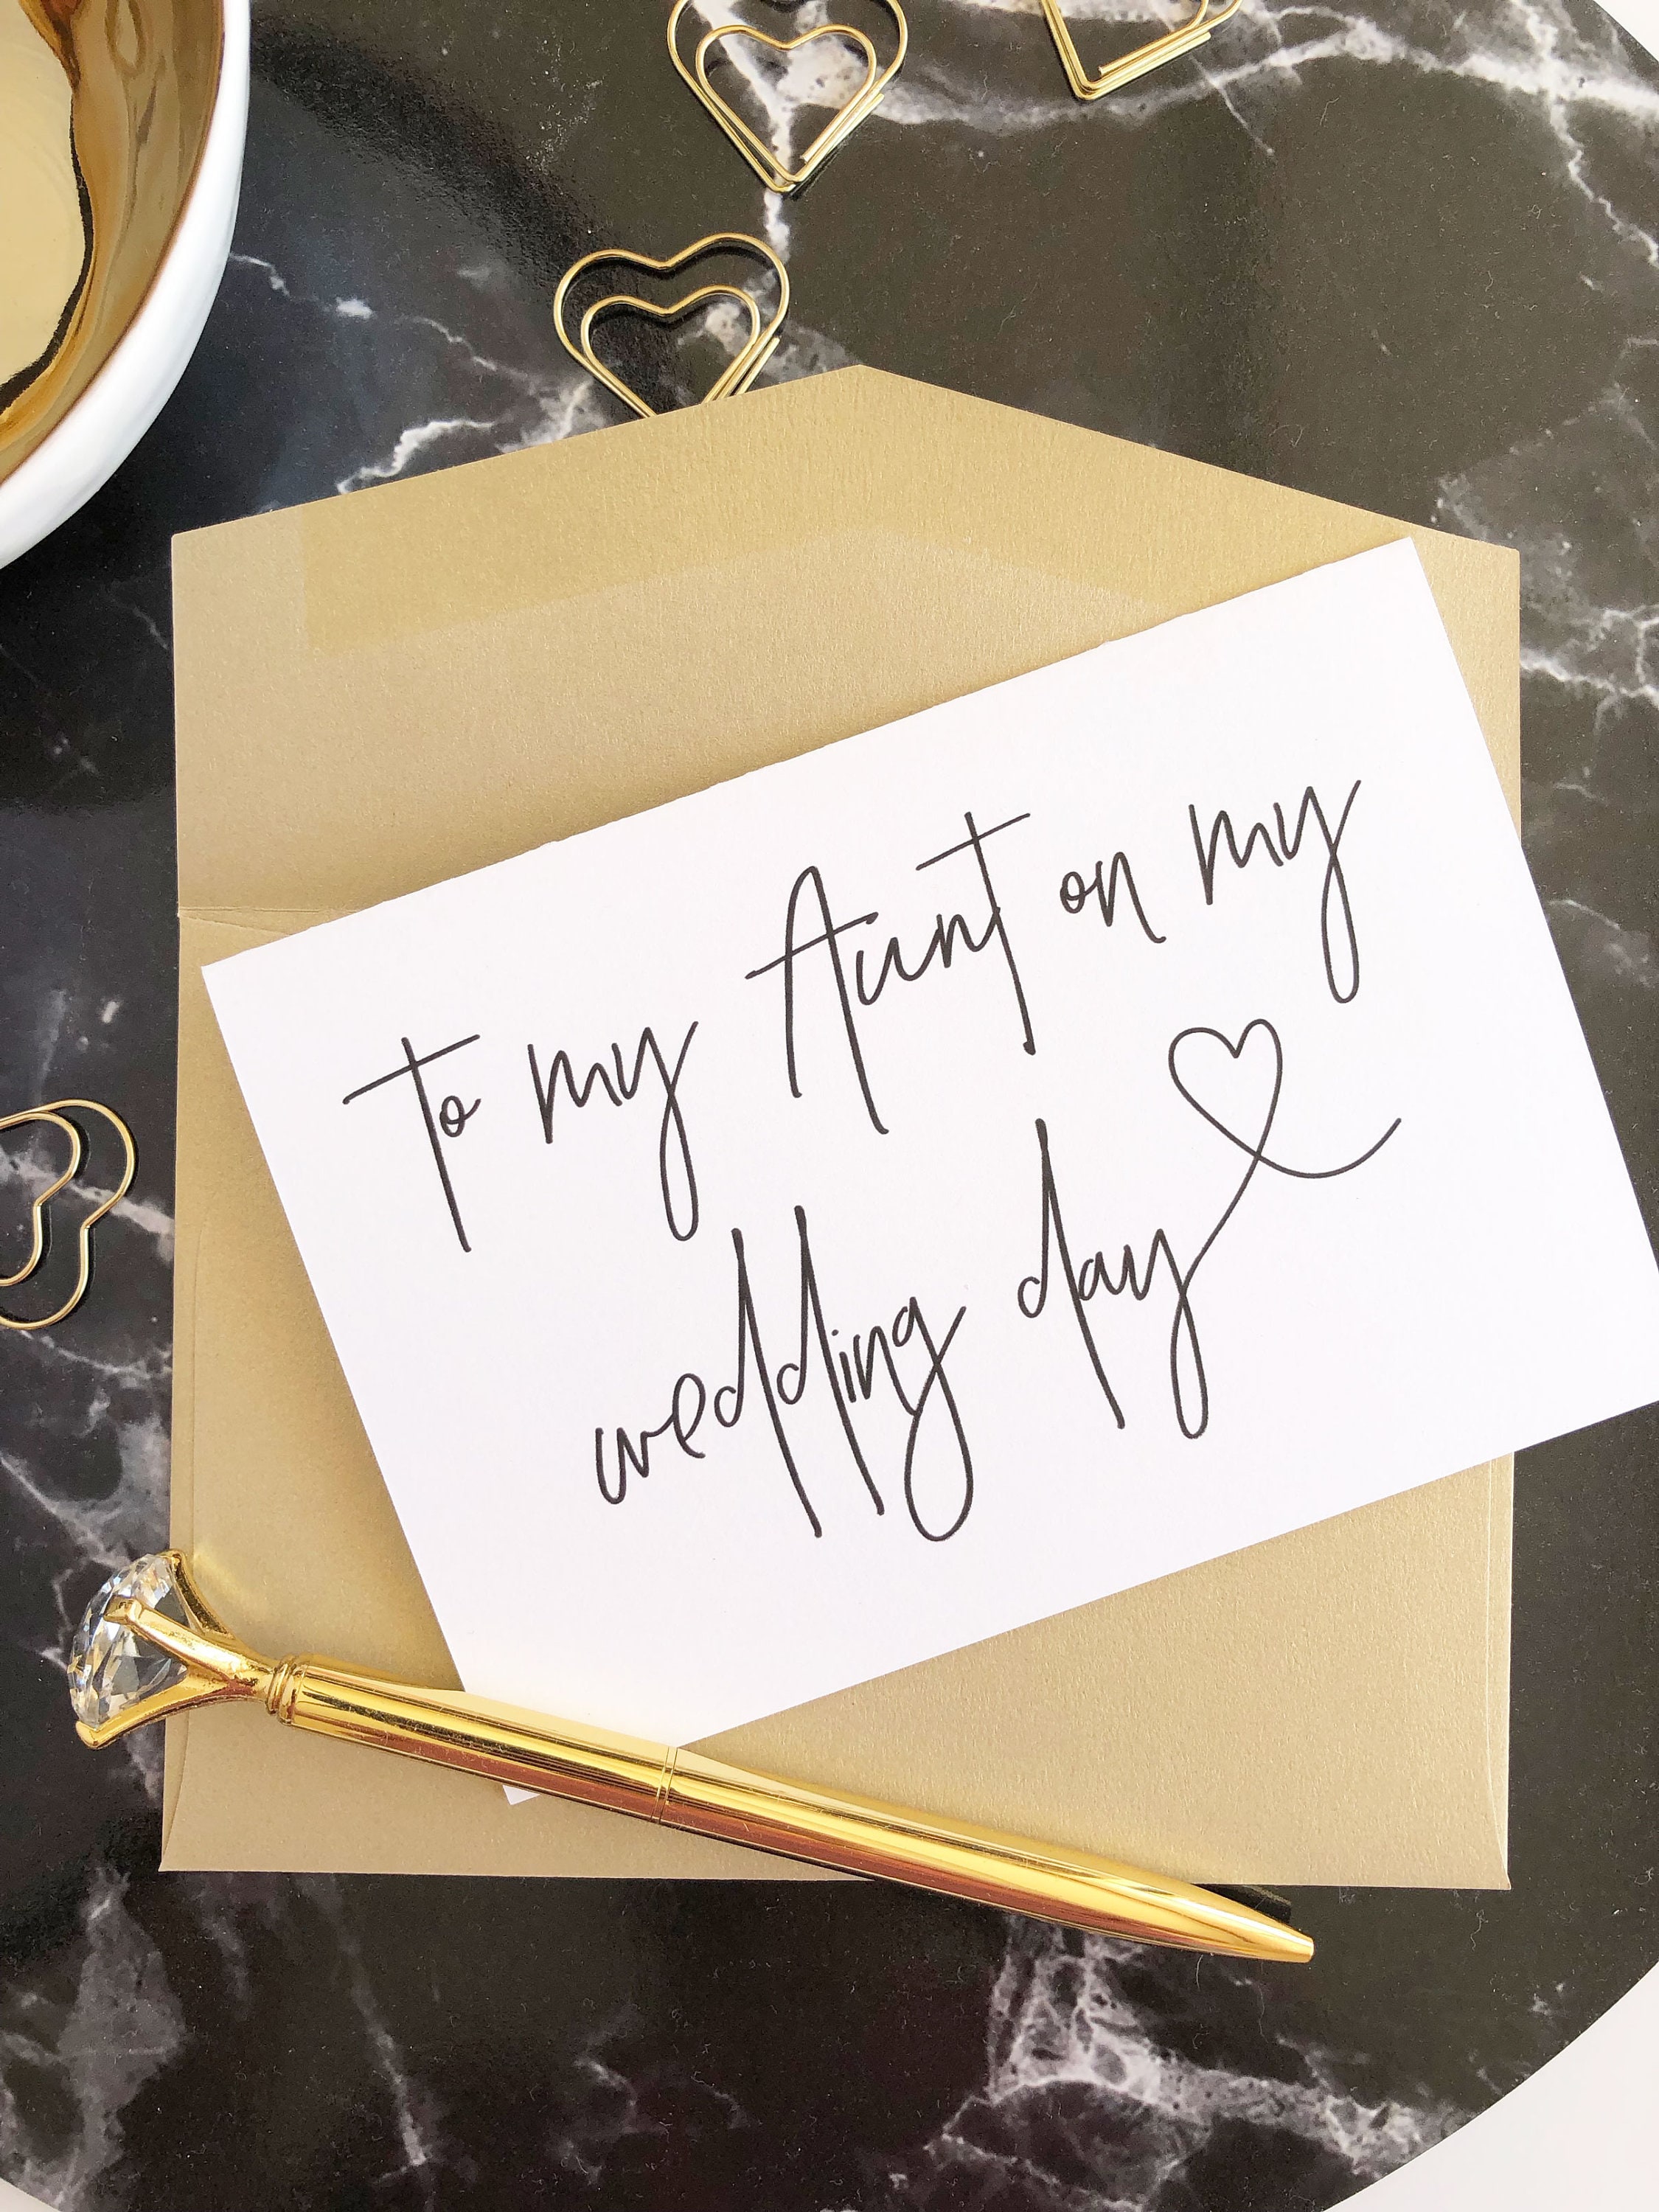 To my Aunt on my
wedding day